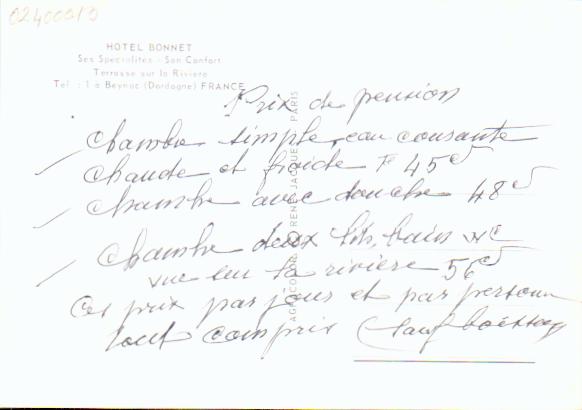 0240009/9
HOTEL BONNET
Ses Spécialités - Son Confort
Terrasse sur la Rivière
Tél : 1 à Beynac (Dordogne) FRANCE
Prix de pension
Chambre simple, eau courante
chaude et froide F 45
Chambre avec douche 48
Chambre deux lits, bains
vue sur la rivière 56
Ces prix par jour et par personne
tout compris (sauf boisson)
RENÉ JACQUES PARIS